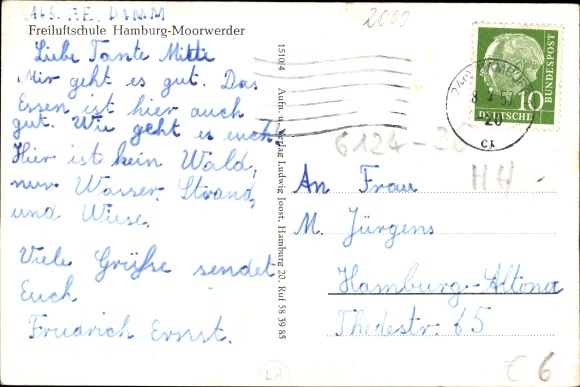 Abs. F.E. DAMM
Freiluftschule Hamburg-Moorwerder
Liebe Tante Mitti
Mir geht es gut. Das
Essen ist hier auch
gut. Wie geht es euch?
Hier ist kein Wald,
nur Wasser, Strand,
und Wiese.
Viele Grüße sendet
Euch
Friedrich Ernst.
151014 Aufn. u. Verlag Ludwig Joost, Hamburg 20, Ruf 58 39 85
2000
HAMBURG
57
20
10
BUNDESPOST
DEUTSCHE
6124-
H4
An Frau
M. Jürgens
Hamburg-Altona
Thedestr. 65
LA
€ 6